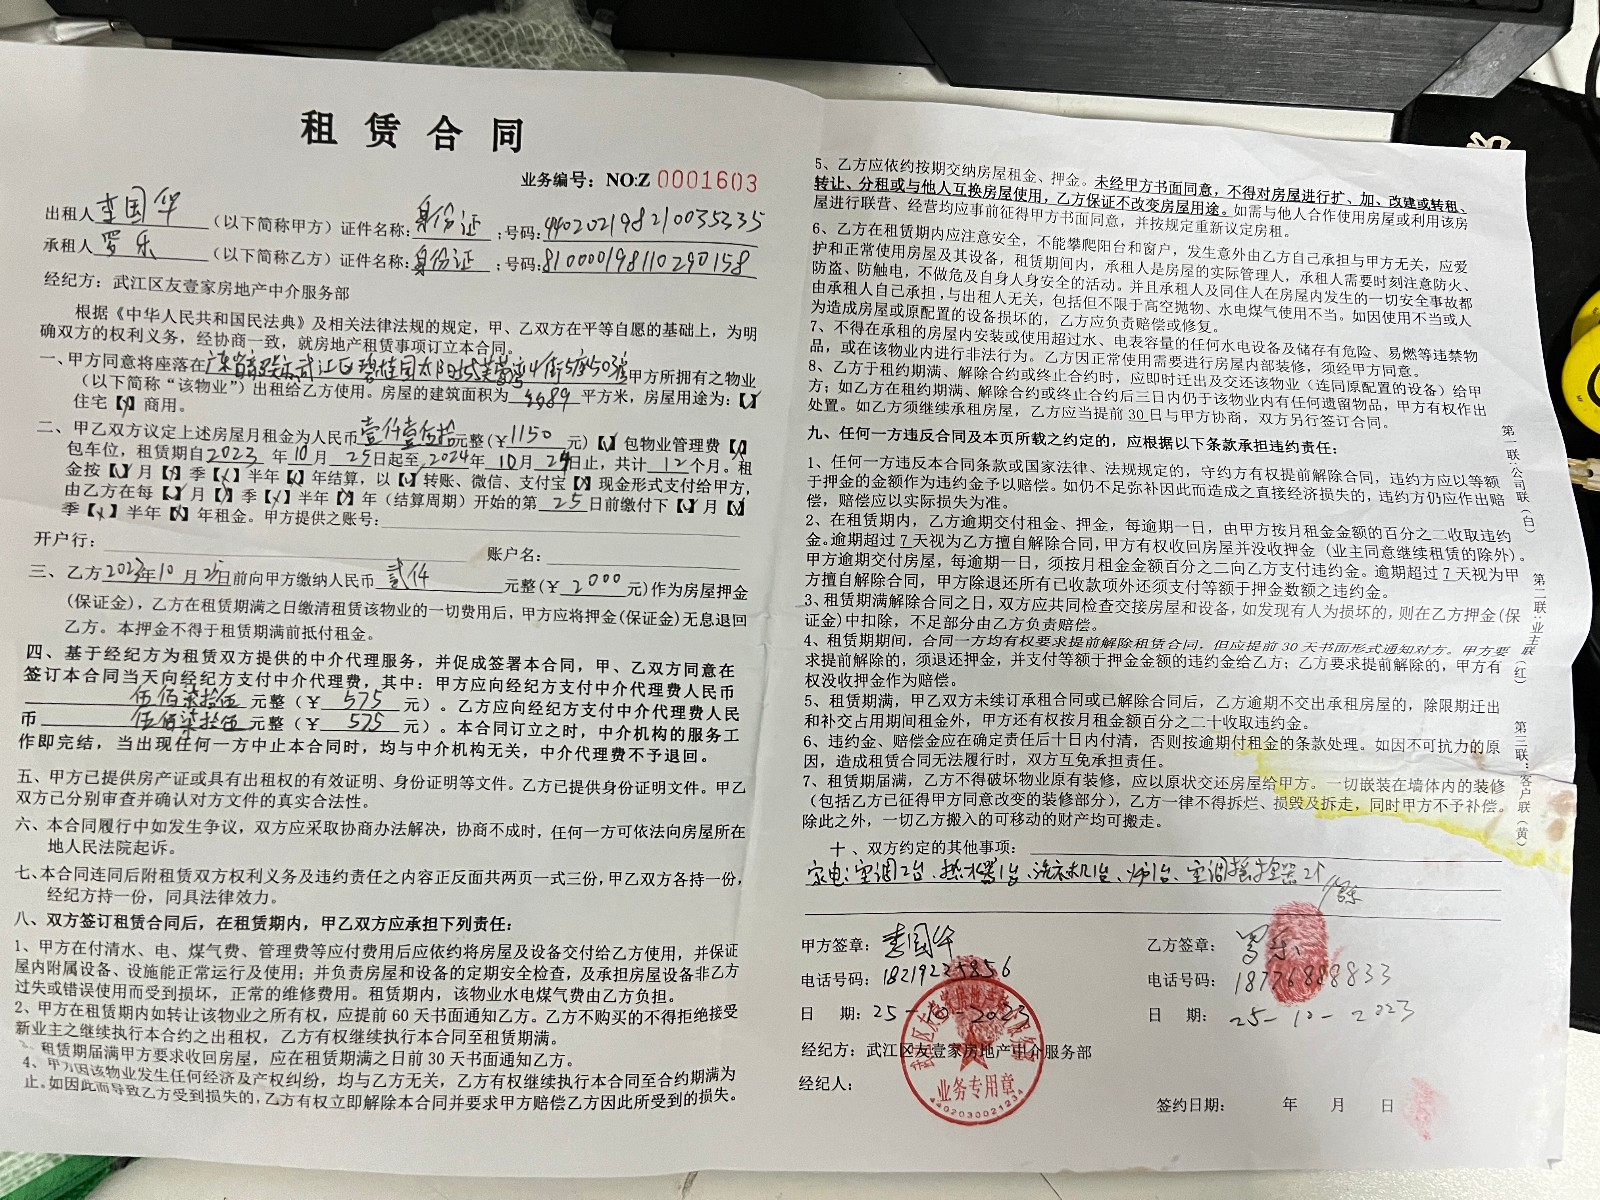 租赁合同
业务编号：NO:Z 0001603
出租人 李国华 （以下简称甲方）证件名称：身份证 ；号码：440202198210035335
承租人 罗乐 （以下简称乙方）证件名称：身份证 ；号码：810000198110290158
经纪方：武江区友壹家房地产中介服务部
根据《中华人民共和国民法典》及相关法律法规的规定，甲、乙双方在平等自愿的基础上，为明
确双方的权利义务，经协商一致，就房地产租赁事项订立本合同。
一、甲方同意将座落在广东省韶关市武江区碧桂园太阳城芙蓉湾4街5座503房 甲方所拥有之物业
（以下简称“该物业”）出租给乙方使用。房屋的建筑面积为 89 平方米，房屋用途为：【√】
住宅【×】商用。
二、甲乙双方议定上述房屋月租金为人民币壹仟壹佰伍拾元整（￥1150 元）【√】包物业管理费【】
包车位，租赁期自2023 年10月 25日起至2024年 10月 24日止，共计 12 个月。租
金按【√】月【】季【×】半年【】年结算，以【√】转账、微信、支付宝【】现金形式支付给甲方，
由乙方在每【√】月【】季【×】半年【】年（结算周期）开始的第 25 日前缴付下【√】月【】
季【×】半年【】年租金。甲方提供之账号：
开户行： 账户名：
三、乙方2023年10月25日前向甲方缴纳人民币 贰仟 元整（￥ 2000 元）作为房屋押金
(保证金)，乙方在租赁期满之日缴清租赁该物业的一切费用后，甲方应将押金(保证金)无息退回
乙方。本押金不得于租赁期满前抵付租金。
四、基于经纪方为租赁双方提供的中介代理服务，并促成签署本合同，甲、乙双方同意在
签订本合同当天向经纪方支付中介代理费，其中：甲方应向经纪方支付中介代理费人民币
伍佰柒拾伍 元整（￥ 575 元）。乙方应向经纪方支付中介代理费人民
币 伍佰柒拾伍 元整（￥ 575 元）。本合同订立之时，中介机构的服务工
作即完结，当出现任何一方中止本合同时，均与中介机构无关，中介代理费不予退回。
五、甲方已提供房产证或具有出租权的有效证明、身份证明等文件。乙方已提供身份证明文件。甲乙
双方已分别审查并确认对方文件的真实合法性。
六、本合同履行中如发生争议，双方应采取协商办法解决，协商不成时，任何一方可依法向房屋所在
地人民法院起诉。
七、本合同连同后附租赁双方权利义务及违约责任之内容正反面共两页一式三份，甲乙双方各持一份，
经纪方持一份，同具法律效力。
八、双方签订租赁合同后，在租赁期内，甲乙双方应承担下列责任：
1、甲方在付清水、电、煤气费、管理费等应付费用后应依约将房屋及设备交付给乙方使用，并保证
屋内附属设备、设施能正常运行及使用；并负责房屋和设备的定期安全检查，及承担房屋设备非乙方
过失或错误使用而受到损坏，正常的维修费用。租赁期内，该物业水电煤气费由乙方负担。
2、甲方在租赁期内如转让该物业之所有权，应提前60天书面通知乙方。乙方不购买的不得拒绝接受
新业主之继续执行本合约之出租权，乙方有权继续执行本合同至租赁期满。
3、租赁期届满甲方要求收回房屋，应在租赁期满之日前30天书面通知乙方。
4、甲方因该物业发生任何经济及产权纠纷，均与乙方无关，乙方有权继续执行本合同至合约期满为
止。如因此而导致乙方受到损失的，乙方有权立即解除本合同并要求甲方赔偿乙方因此所受到的损失。
5、乙方应依约按期交纳房屋租金、押金。未经甲方书面同意，不得对房屋进行扩、加、改建或转租、
转让、分租或与他人互换房屋使用，乙方保证不改变房屋用途。如需与他人合作使用房屋或利用该房
屋进行联营、经营均应事前征得甲方书面同意，并按规定重新议定房租。
6、乙方在租赁期内应注意安全，不能攀爬阳台和窗户，发生意外由乙方自己承担与甲方无关，应爱
护和正常使用房屋及其设备，租赁期间内，承租人是房屋的实际管理人，承租人需要时刻注意防火、
防盗、防触电，不做危及自身人身安全的活动。并且承租人及同住人在房屋内发生的一切安全事故都
由承租人自己承担，与出租人无关，包括但不限于高空抛物、水电煤气使用不当。如因使用不当或人
为造成房屋或原配置的设备损坏的，乙方应负责赔偿或修复。
7、不得在承租的房屋内安装或使用超过水、电表容量的任何水电设备及储存有危险、易燃等违禁物
品，或在该物业内进行非法行为。乙方因正常使用需要进行房屋内部装修，须经甲方同意。
8、乙方于租约期满、解除合约或终止合约时，应即时迁出及交还该物业（连同原配置的设备）给甲
方；如乙方在租约期满、解除合约或终止合约后三日内仍于该物业内有任何遗留物品，甲方有权作出
处置。如乙方须继续承租房屋，乙方应当提前30日与甲方协商，双方另行签订合同。
九、任何一方违反合同及本页所载之约定的，应根据以下条款承担违约责任：
1、任何一方违反本合同条款或国家法律、法规规定的，守约方有权提前解除合同，违约方应以等额
于押金的金额作为违约金予以赔偿。如仍不足弥补因此而造成之直接经济损失的，违约方仍应作出赔
偿，赔偿应以实际损失为准。
2、在租赁期内，乙方逾期交付租金、押金，每逾期一日，由甲方按月租金金额的百分之二收取违约
金。逾期超过7天视为乙方擅自解除合同，甲方有权收回房屋并没收押金（业主同意继续租赁的除外）。
甲方逾期交付房屋，每逾期一日，须按月租金金额百分之二向乙方支付违约金。逾期超过7天视为甲
方擅自解除合同，甲方除退还所有已收款项外还须支付等额于押金数额之违约金。
3、租赁期满解除合同之日，双方应共同检查交接房屋和设备，如发现有人为损坏的，则在乙方押金(保
证金)中扣除，不足部分由乙方负责赔偿。
4、租赁期期间，合同一方均有权要求提前解除租赁合同，但应提前30天书面形式通知对方。甲方要
求提前解除的，须退还押金，并支付等额于押金金额的违约金给乙方；乙方要求提前解除的，甲方有
权没收押金作为赔偿。
5、租赁期满，甲乙双方未续订承租合同或已解除合同后，乙方逾期不交出承租房屋的，除限期迁出
和补交占用期间租金外，甲方还有权按月租金额百分之二十收取违约金。
6、违约金、赔偿金应在确定责任后十日内付清，否则按逾期付租金的条款处理。如因不可抗力的原
因，造成租赁合同无法履行时，双方互免承担责任。
7、租赁期届满，乙方不得破坏物业原有装修，应以原状交还房屋给甲方。一切嵌装在墙体内的装修
（包括乙方已征得甲方同意改变的装修部分），乙方一律不得拆烂、损毁及拆走，同时甲方不予补偿。
除此之外，一切乙方搬入的可移动的财产均可搬走。
十、双方约定的其他事项：
家电：空调2台、热水器1台、洗衣机1台、炉1台、空调摇控器2个
甲方签章：李国华 乙方签章：罗乐
电话号码：18219225856 电话号码：18776888833
日 期：25-10-2023 日 期：25-10-2023
经纪方：武江区友壹家房地产中介服务部
经纪人：
签约日期： 年 月 日
业务专用章
4402030021234
第一联：公司联（白）
第二联：业主联（红）
第三联：客户联（黄）